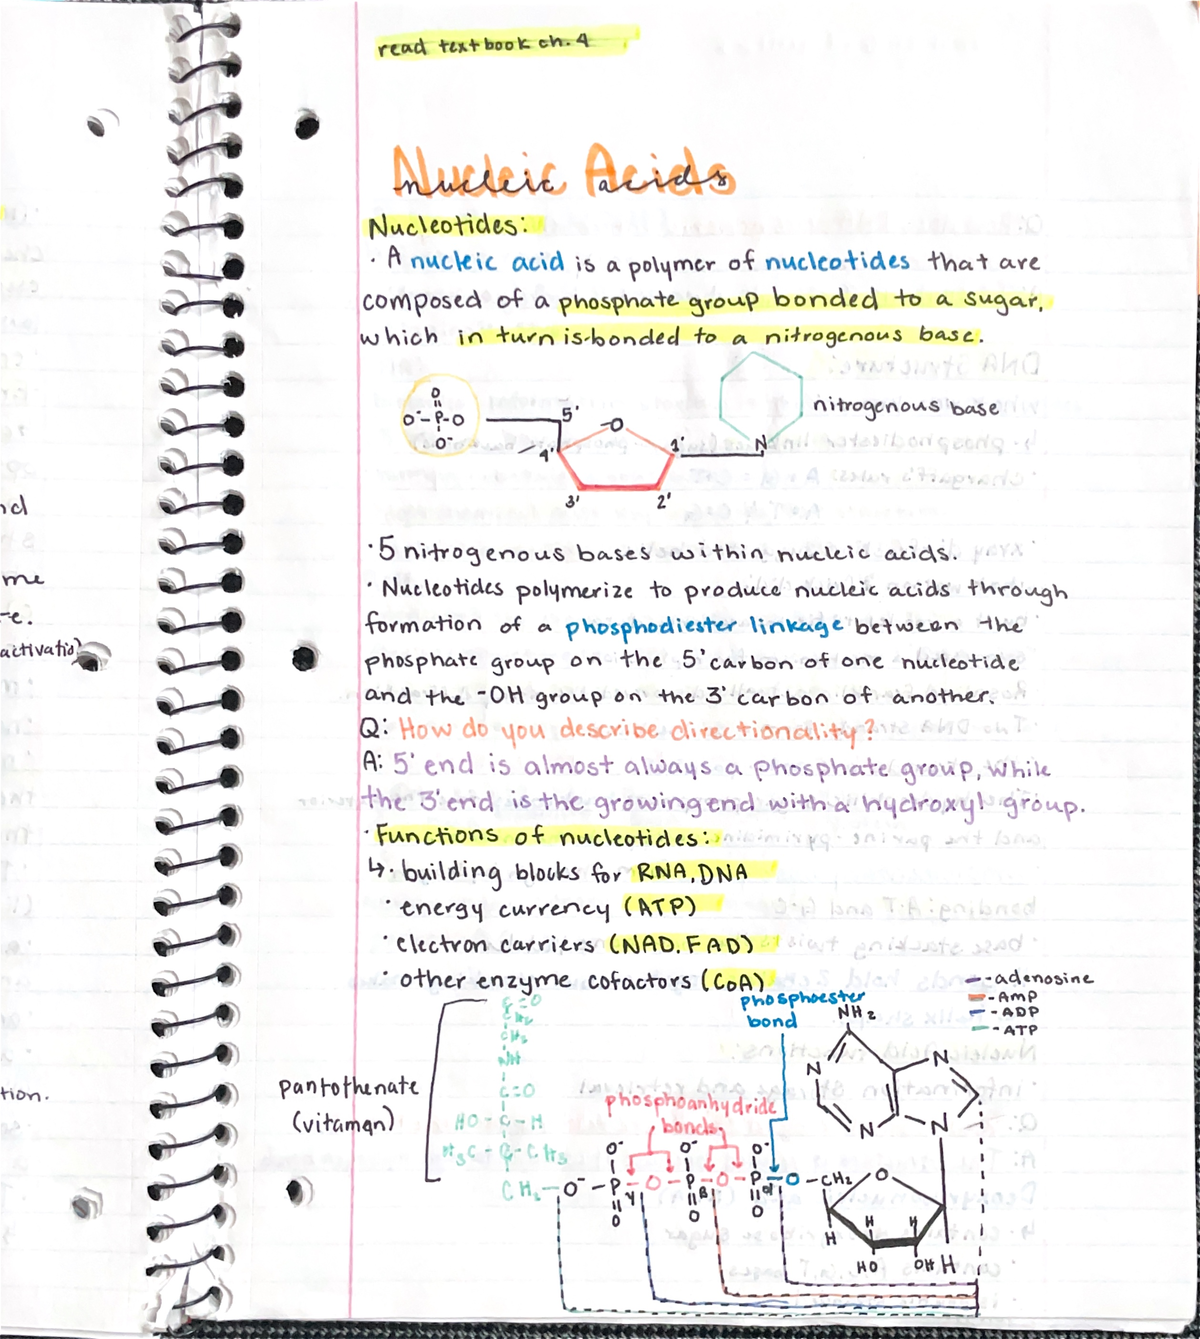 read textbook ch. 4
Nucleic Acids
nucleic acids
Nucleotides:
· A nucleic acid is a polymer of nucleotides that are
composed of a phosphate group bonded to a sugar,
which in turn is bonded to a nitrogenous base.
O
O⁻-P-O
O⁻
5'
O
4'
1'
3'
2'
N
nitrogenous base
· 5 nitrogenous bases within nucleic acids.
· Nucleotides polymerize to produce nucleic acids through
formation of a phosphodiester linkage between the
phosphate group on the 5' carbon of one nucleotide
and the -OH group on the 3' carbon of another.
Q: How do you describe directionality?
A: 5' end is almost always a phosphate group, while
the 3' end is the growing end with a hydroxyl group.
· Functions of nucleotides:
↳· building blocks for RNA, DNA
· energy currency (ATP)
· electron carriers (NAD, FAD)
· other enzyme cofactors (CoA)
- adenosine
- AMP
- ADP
- ATP
phosphoester
bond
NH₂
N
N
N
N
pantothenate
(vitamqn)
C=O
CH₂
CH₂
NH
C=O
HO-C-H
H₃C-C-CH₃
phosphoanhydride
bonds
O⁻ O⁻ O⁻
CH₂-O⁻-P-O-P-O-P-O-CH₂
γ β α
O O O
O
H H H
HO OH H
nd
me
e.
activatio
tion.